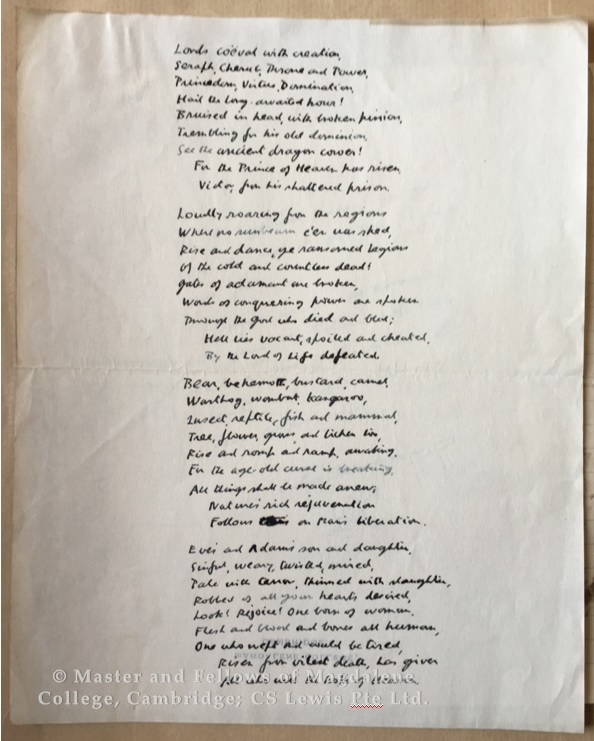 Lords coëval with creation,
Seraph, Cherub, Throne and Power,
Princedom, Virtue, Domination,
Hail the long-awaited hour!
Bruised in head, with broken pinion,
Trembling for his old dominion,
See the ancient dragon cower!
For the Prince of Heaven has risen,
Victor, from his shattered prison.
Loudly roaring from the regions
Where no sunbeam e'er was shed,
Rise and dance, ye ransomed legions
Of the cold and countless dead!
Gates of adamant are broken,
Words of conquering power are spoken
Through the God who died and bled;
Hell lies vacant, spoiled and cheated,
By the Lord of Life defeated.
Bear, behemoth, bustard, camel,
Warthog, wombat, kangaroo,
Insect, reptile, fish and mammal,
Tree, flower, grass, and lichen too,
Rise and romp and ramp, awaking,
For the age-old curse is breaking.
All things shall be made anew;
Nature's rich rejuvenation
Follows on Man's liberation.
Eve's and Adam's son and daughter,
Sinful, weary, twisted, mired,
Pale with terror, thinned with slaughter,
Robbed of all your hearts desired,
Look! Rejoice! One born of woman,
Flesh and blood and bones all human,
One who wept and could be tired,
Risen from vilest death, has given
All who will the hope of Heaven.
© Master and Fellows of Magdalene
College, Cambridge; CS Lewis Pte Ltd.